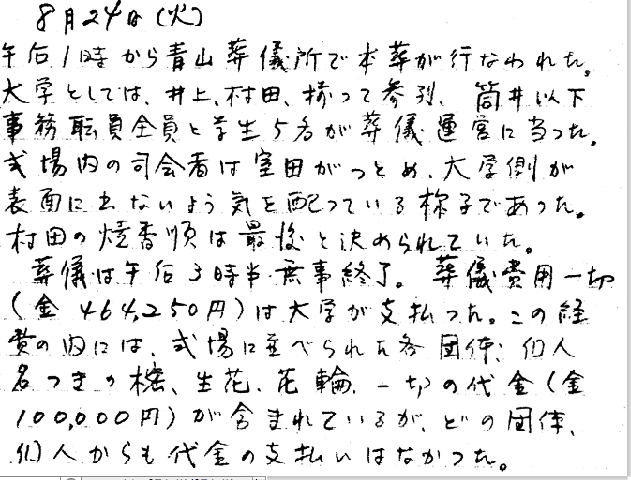 8月24日(火)
午后1時から青山葬儀所で本葬が行なわれた。
大学としては、井上、村田、揃って参列、筒井以下
事務職員全員と学生5名が葬儀運営に当った。
式場内の司会者は室田がつとめ、大学側が
表面に出ないよう気を配っている様子であった。
村田の焼香順は最後と決められていた。
葬儀は午后3時半無事終了。葬儀費用一切
(金464,250円)は大学が支払った。この経
費の内には、式場に並べられた各団体、個人
名つきの樒、生花、花輪、一切の代金(金
100,000円)が含まれているが、どの団体、
個人からも代金の支払いはなかった。